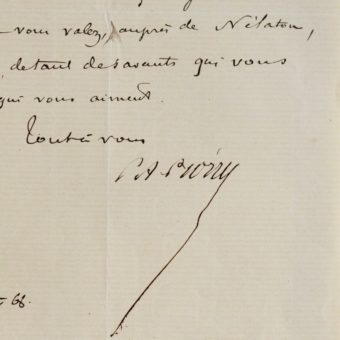 vous valez, auprès de Nélaton,
de tant de savants qui vous
qui vous aiment.
Tout à vous
P A Piorry
68.